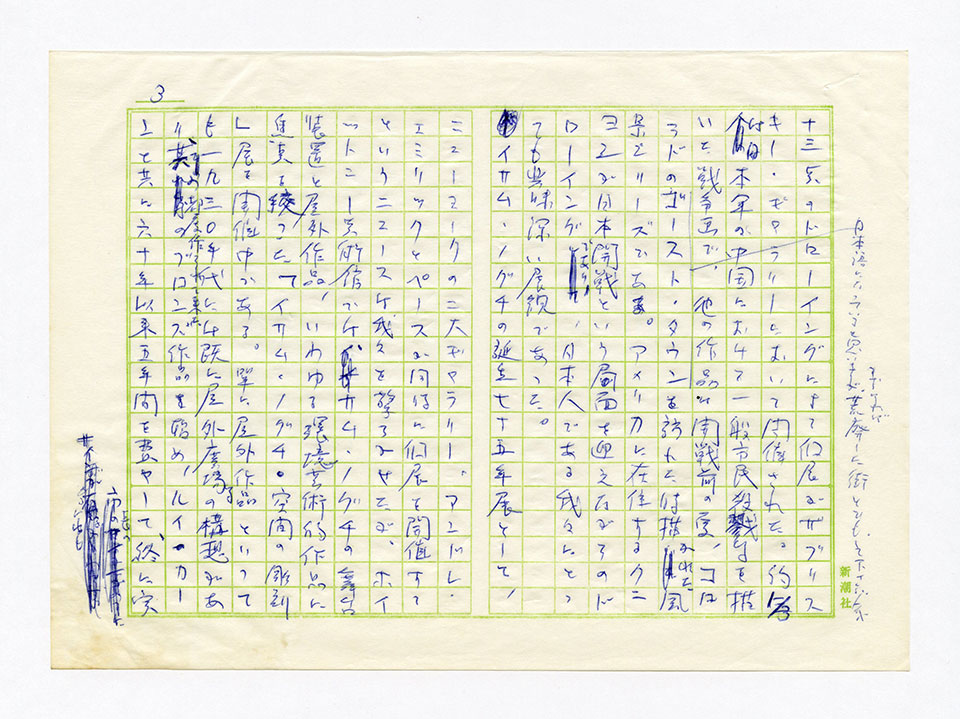 3
十三点のドローイングによる個展がザブリス
キー・ギャラリーにおいて開催された。約1/3
は日本軍の中国における一般市民殺戮を描
いた戦争画で、他の作品は開戦前の夏、コロ
ラドのゴースト・タウンを訪れた時描かれた風
景シリーズである。アメリカに在住するクニ
ヨシが日本開戦という局面を迎えながらのド
ローイングであり、日本人である我々にとっ
ても興味深い展観であった。
イサム・ノグチの誕生七十五年展として、
ニューヨークの二大ギャラリー、アンドレ・
エミリックとペースが同時に個展を開催すて
というニュースは我々を驚ろかせたが、ホイ
ットニー美術館ではイサム・ノグチの舞台
装置と屋外作品、いわゆる環境芸術的作品に
焦点を絞って「イサム・ノグチの空間の彫刻
」展を開催中である。単に屋外作品といって
も一九三〇年代には既に屋外広場の構想があ
り其の制作のブロンズ作品を始め、ルイ・カー
ンと共に六十年以来五年間を費やして、終に実
日本語に
荒廃した街
新潮社